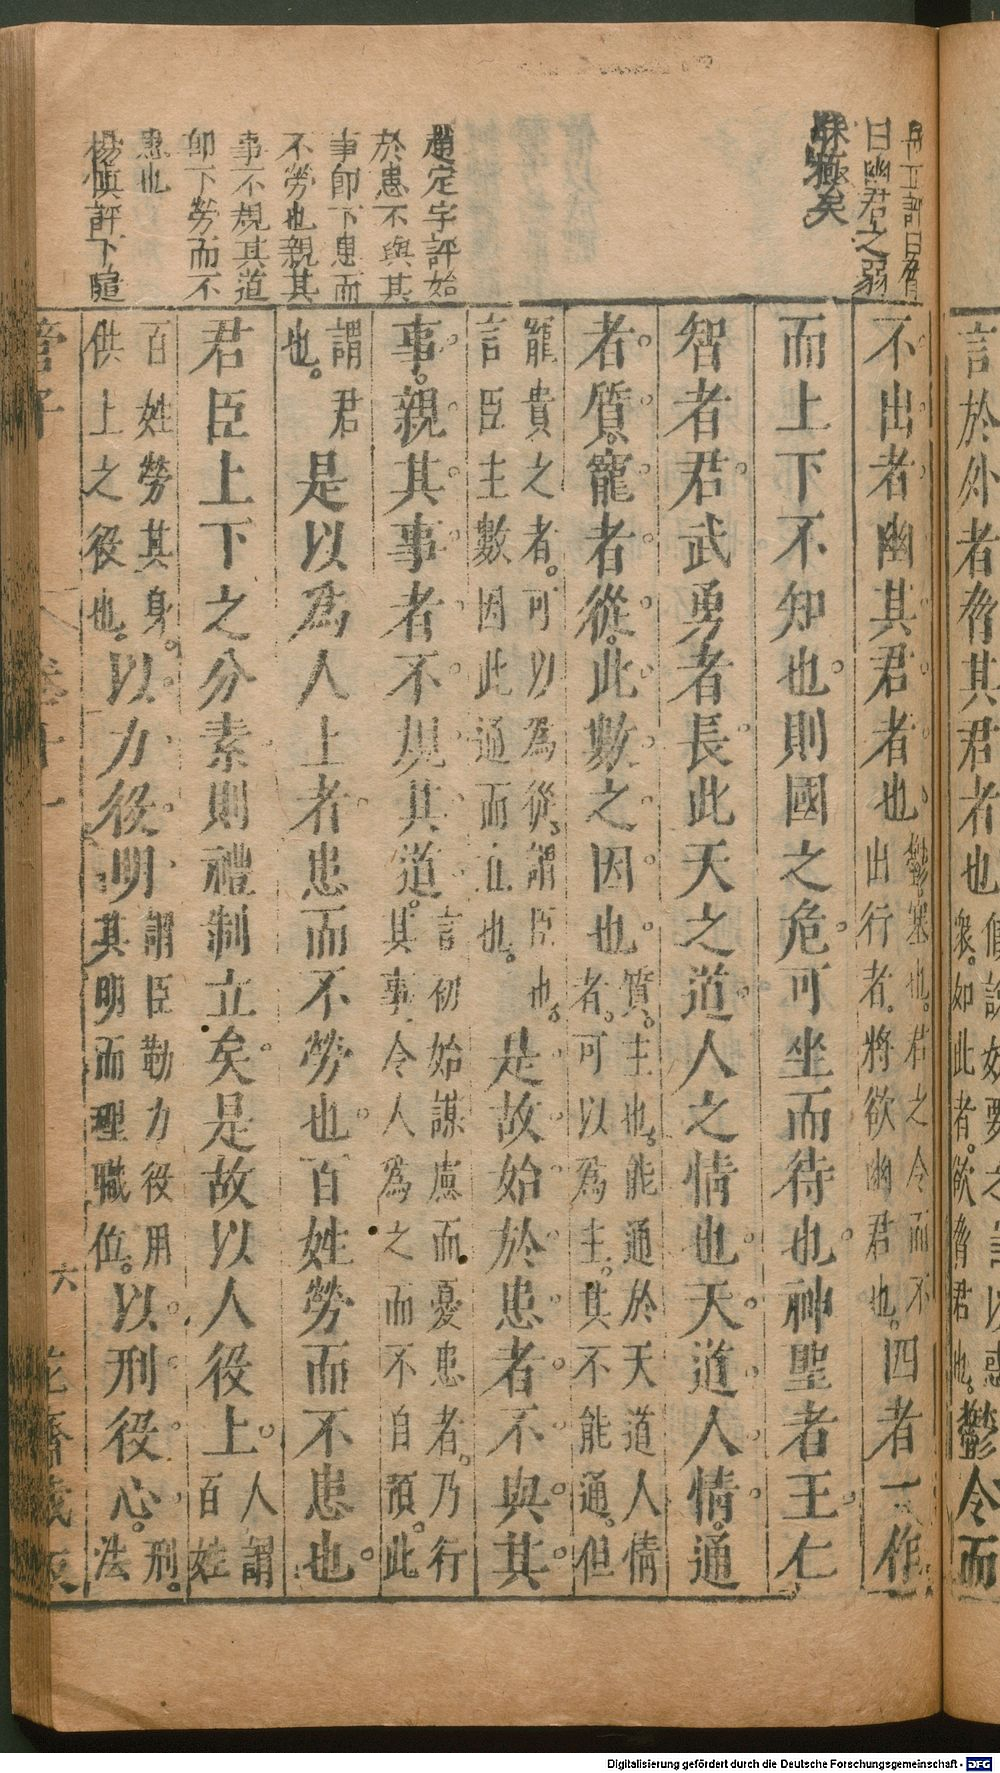 言於外者脅其君者也
衆如此者欲脅君也
鬱令而
曰幽君之弱
殊極矣
不出者幽其君者也
鬱塞也君之令而不
出行者將欲幽君也
四者一作
而上下不知也則國之危可坐而待也神聖者王仁
智者君武勇者長此天之道人之情也天道人情通
者質寵者從此數之因也
質主也能通於天道人情
者可以爲主其不能通但
寵貴之者可以爲從謂臣也
言臣主數因此通而立也
是故始於患者不與其
趙定宇評始
於患不與其
事卽下患而
不勞也親其
事不規其道
卽下勞而不
患也
事親其事者不規其道
言初始謀慮而憂患者乃行
其事令人爲之而不自預此
謂君
也
是以爲人上者患而不勞也百姓勞而不患也
君臣上下之分素則禮制立矣是故以人役上
人謂
百姓
楊慎評下
百姓勞其身
供上之役也
以力役明
謂臣勤力役用
其明而理職位
以刑役心
刑
法
管子
卷十一
六
花齋藏版
Digitalisierung gefördert durch die Deutsche Forschungsgemeinschaft - DFG